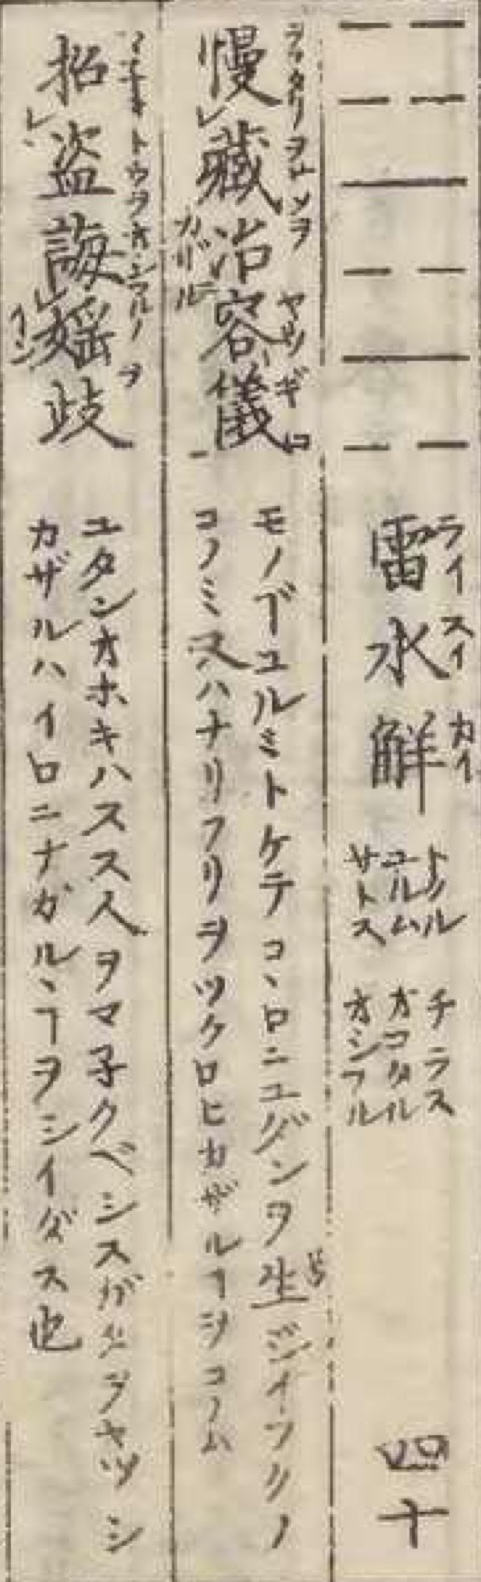 雷水解 四十
ライ スイ カイ
トクル ユルム サトス
チラス オコタル オシフル
慢藏冶容儀
モノゴユルミトケテコヽロニユダンヲ生ジイフクノ
コノミ又ハナリフリヲツクロヒカザルヿヲコノム
招盗誨婬歧
ユタンオホキハススヘヲマ子クベシスガタヲヤツシ
カザルハイロニナガルヽヿヲシイダス也